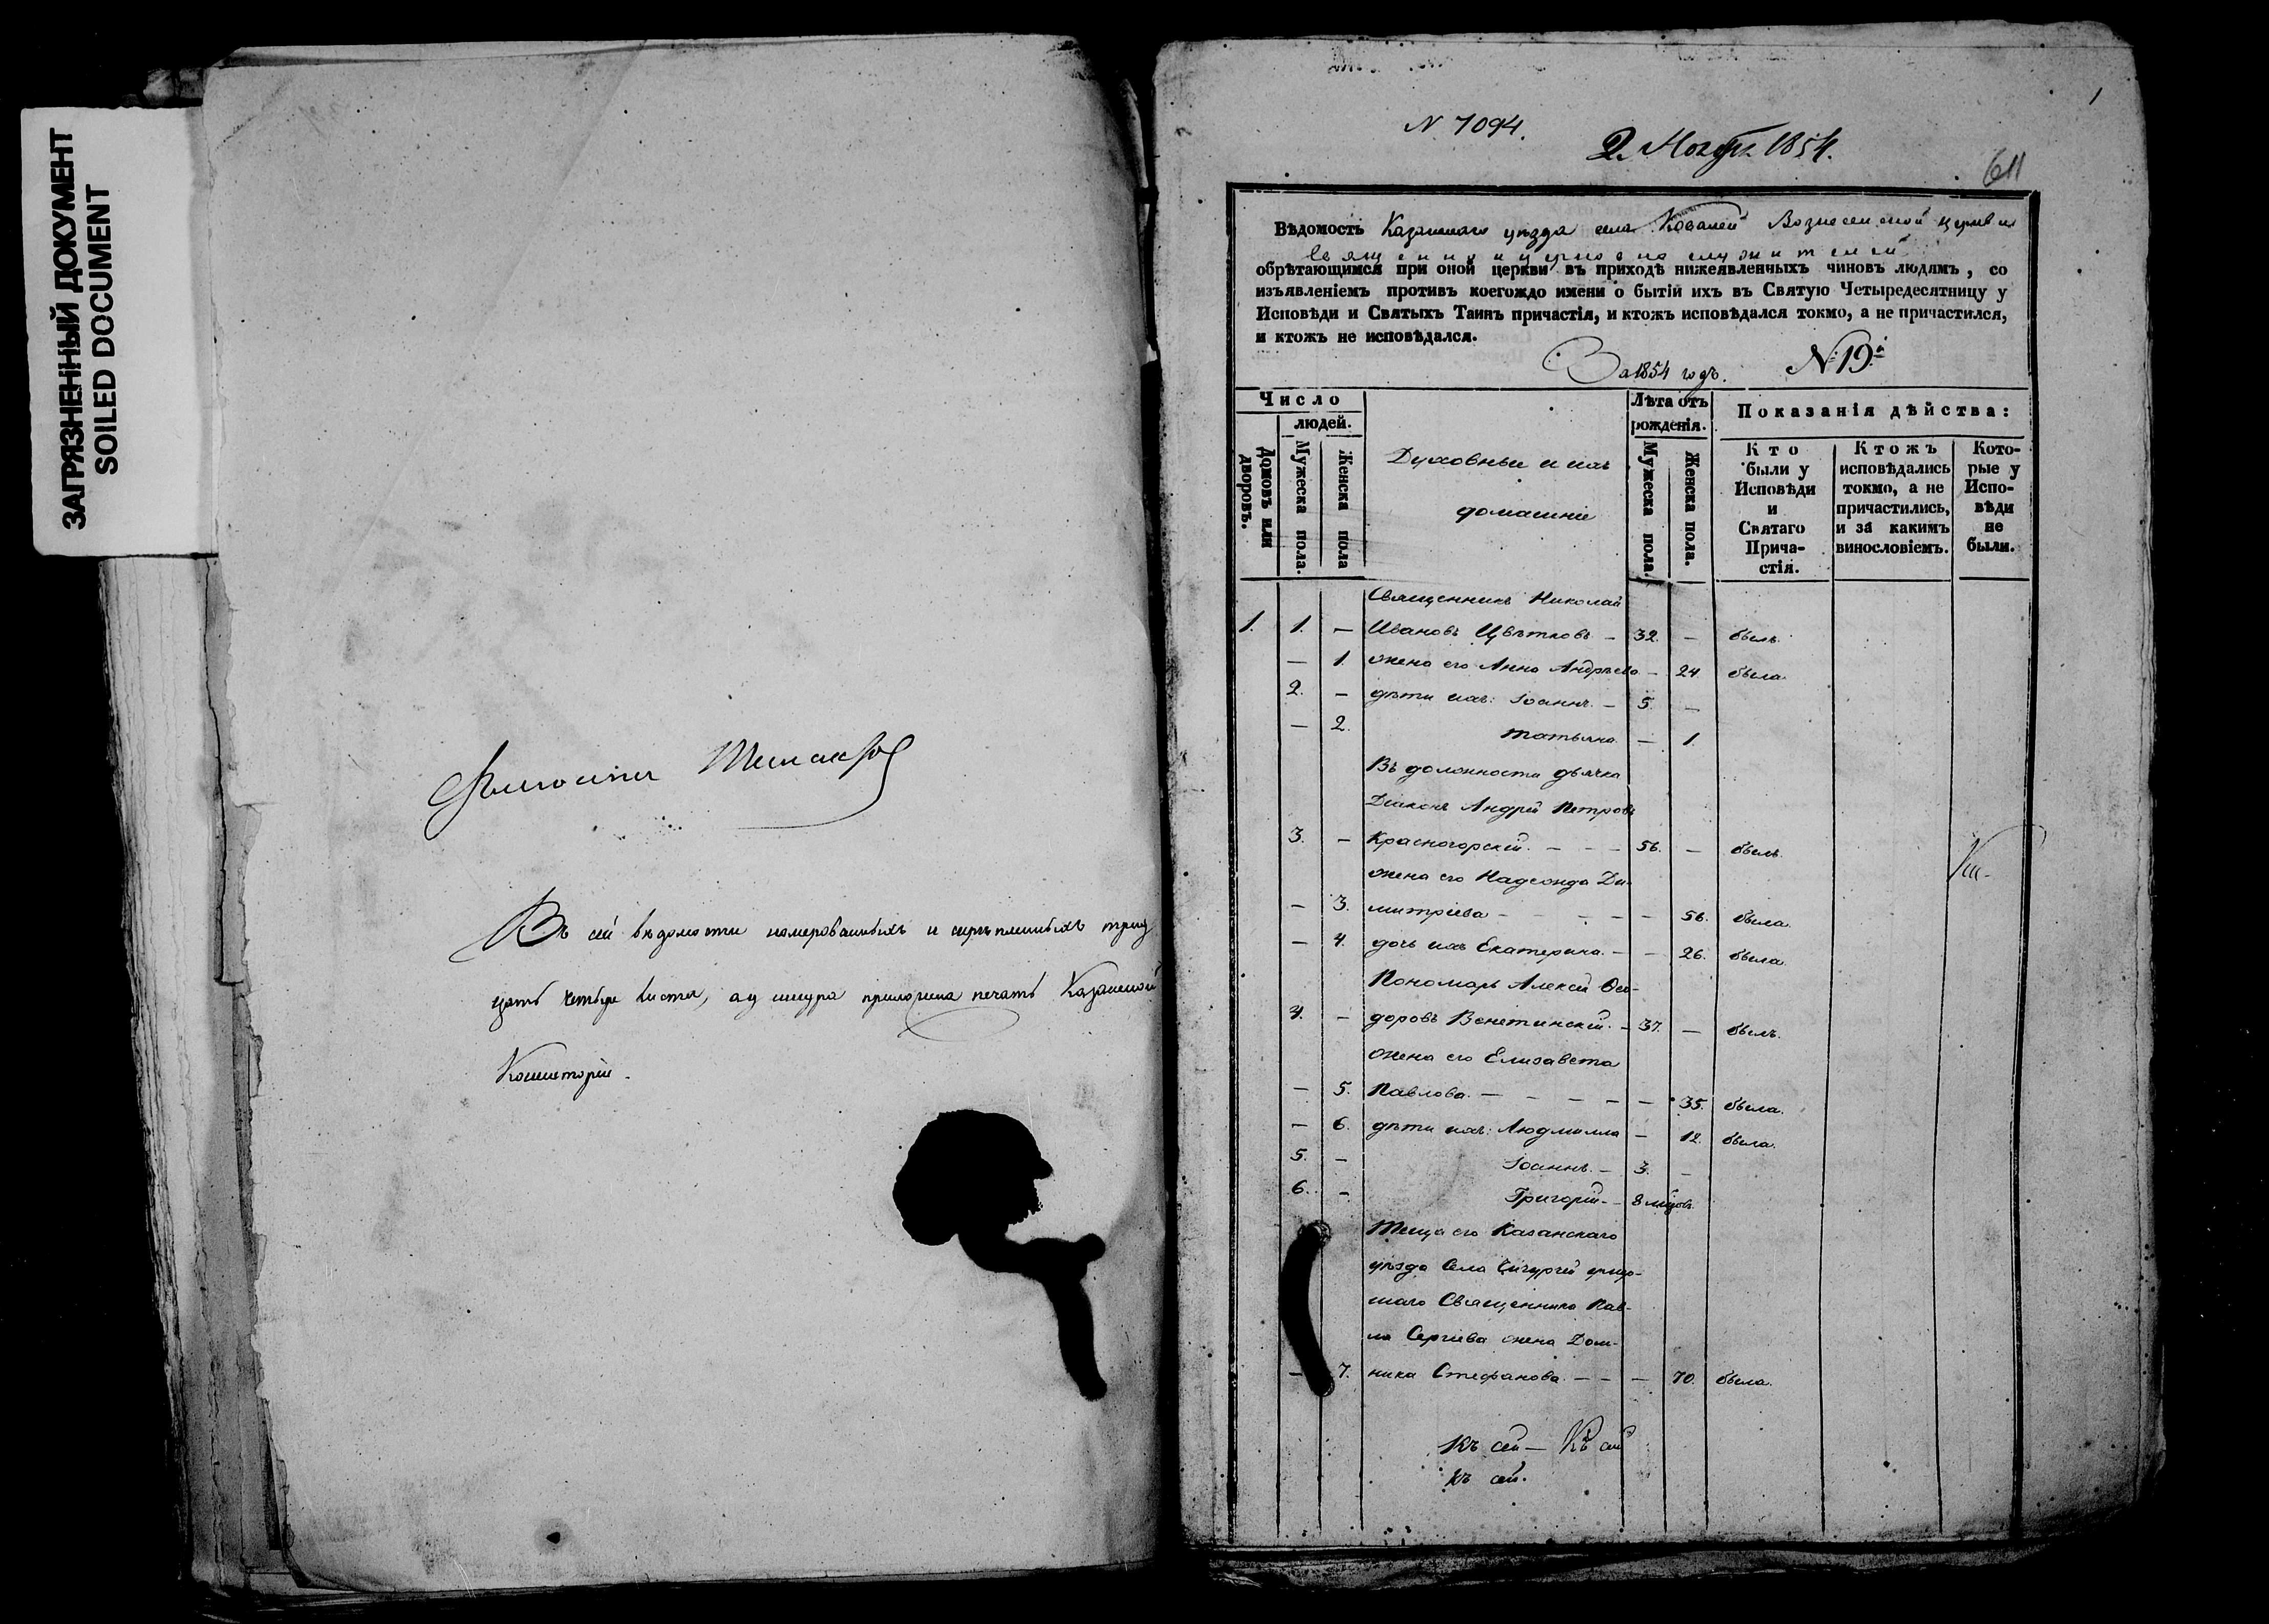 ЗАГРЯЗНЕННЫЙ ДОКУМЕНТ
SOILED DOCUMENT
Въ сей вѣдомости номерованныхъ и скрѣпленныхъ трид
цать четыре листа, а у шнура приложена печать Казанской
Консисторіи.
1
N 7094.
2. Ноября 1854.
611
Вѣдомость Казанскаго уѣзда села Ковалей Вознесенской церкви
священно и церковно служителей
обрѣтающимся при оной церкви въ приходѣ нижеявленныхъ чиновъ людямъ, со
изъявленіемъ противъ коегождо имени о бытіи ихъ въ Святую Четыредесятницу у
Исповѣди и Святыхъ Таинъ причастія, и ктожъ исповѣдался токмо, а не причастился,
и ктожъ не исповѣдался.
За 1854 годъ. № 19й
Число
людей.
Домовъ или дворовъ.
Мужеска пола.
Женска пола
Духовные и ихъ
домашніе
Лѣта отъ
рожденія.
Мужеска пола.
Женска пола.
Показанія дѣйства:
Кто
были у
Исповѣди
и
Святаго
Прича-
стія.
Ктожъ
исповѣдались
токмо, а не
причастились,
и за какимъ
винословіемъ.
Кото-
рые у
Испо-
вѣди
не
были.
Священникъ Николай
1. 1. — Ивановъ Цвѣтковъ — 32. — былъ.
— 1. жена его Анна Андреева — 24 была
2. — дѣти ихъ: Іоаннъ. — 5. —
— 2. Татьяна. — 1.
Въ должности дьячка
Діаконъ Андрей Петровъ
3. — Красногорскій. — — — 56. — былъ.
жена его Надежда Ди-
— 3. митріева — — — — — 56. была.
— 4. дочь ихъ Екатерина. — — 26. была.
Пономарь Алексѣй Ѳео-
4. — доровъ Венетинскій. — 37. — былъ.
жена его Елизавета
— 5. Павлова. — — — — — 35. была.
— 6. дѣти ихъ: Людмилла — 12. была.
5. — Іоаннъ. — 3. —
6. — Григорій. — 8 мѣцовъ.
Теща его Казанскаго
уѣзда села умер-
шаго Священника Пав-
ла Сергіева жена Дом-
— 7. ника Стефанова. — — — 70. была.
Къ сей — Къ сей
къ сей.